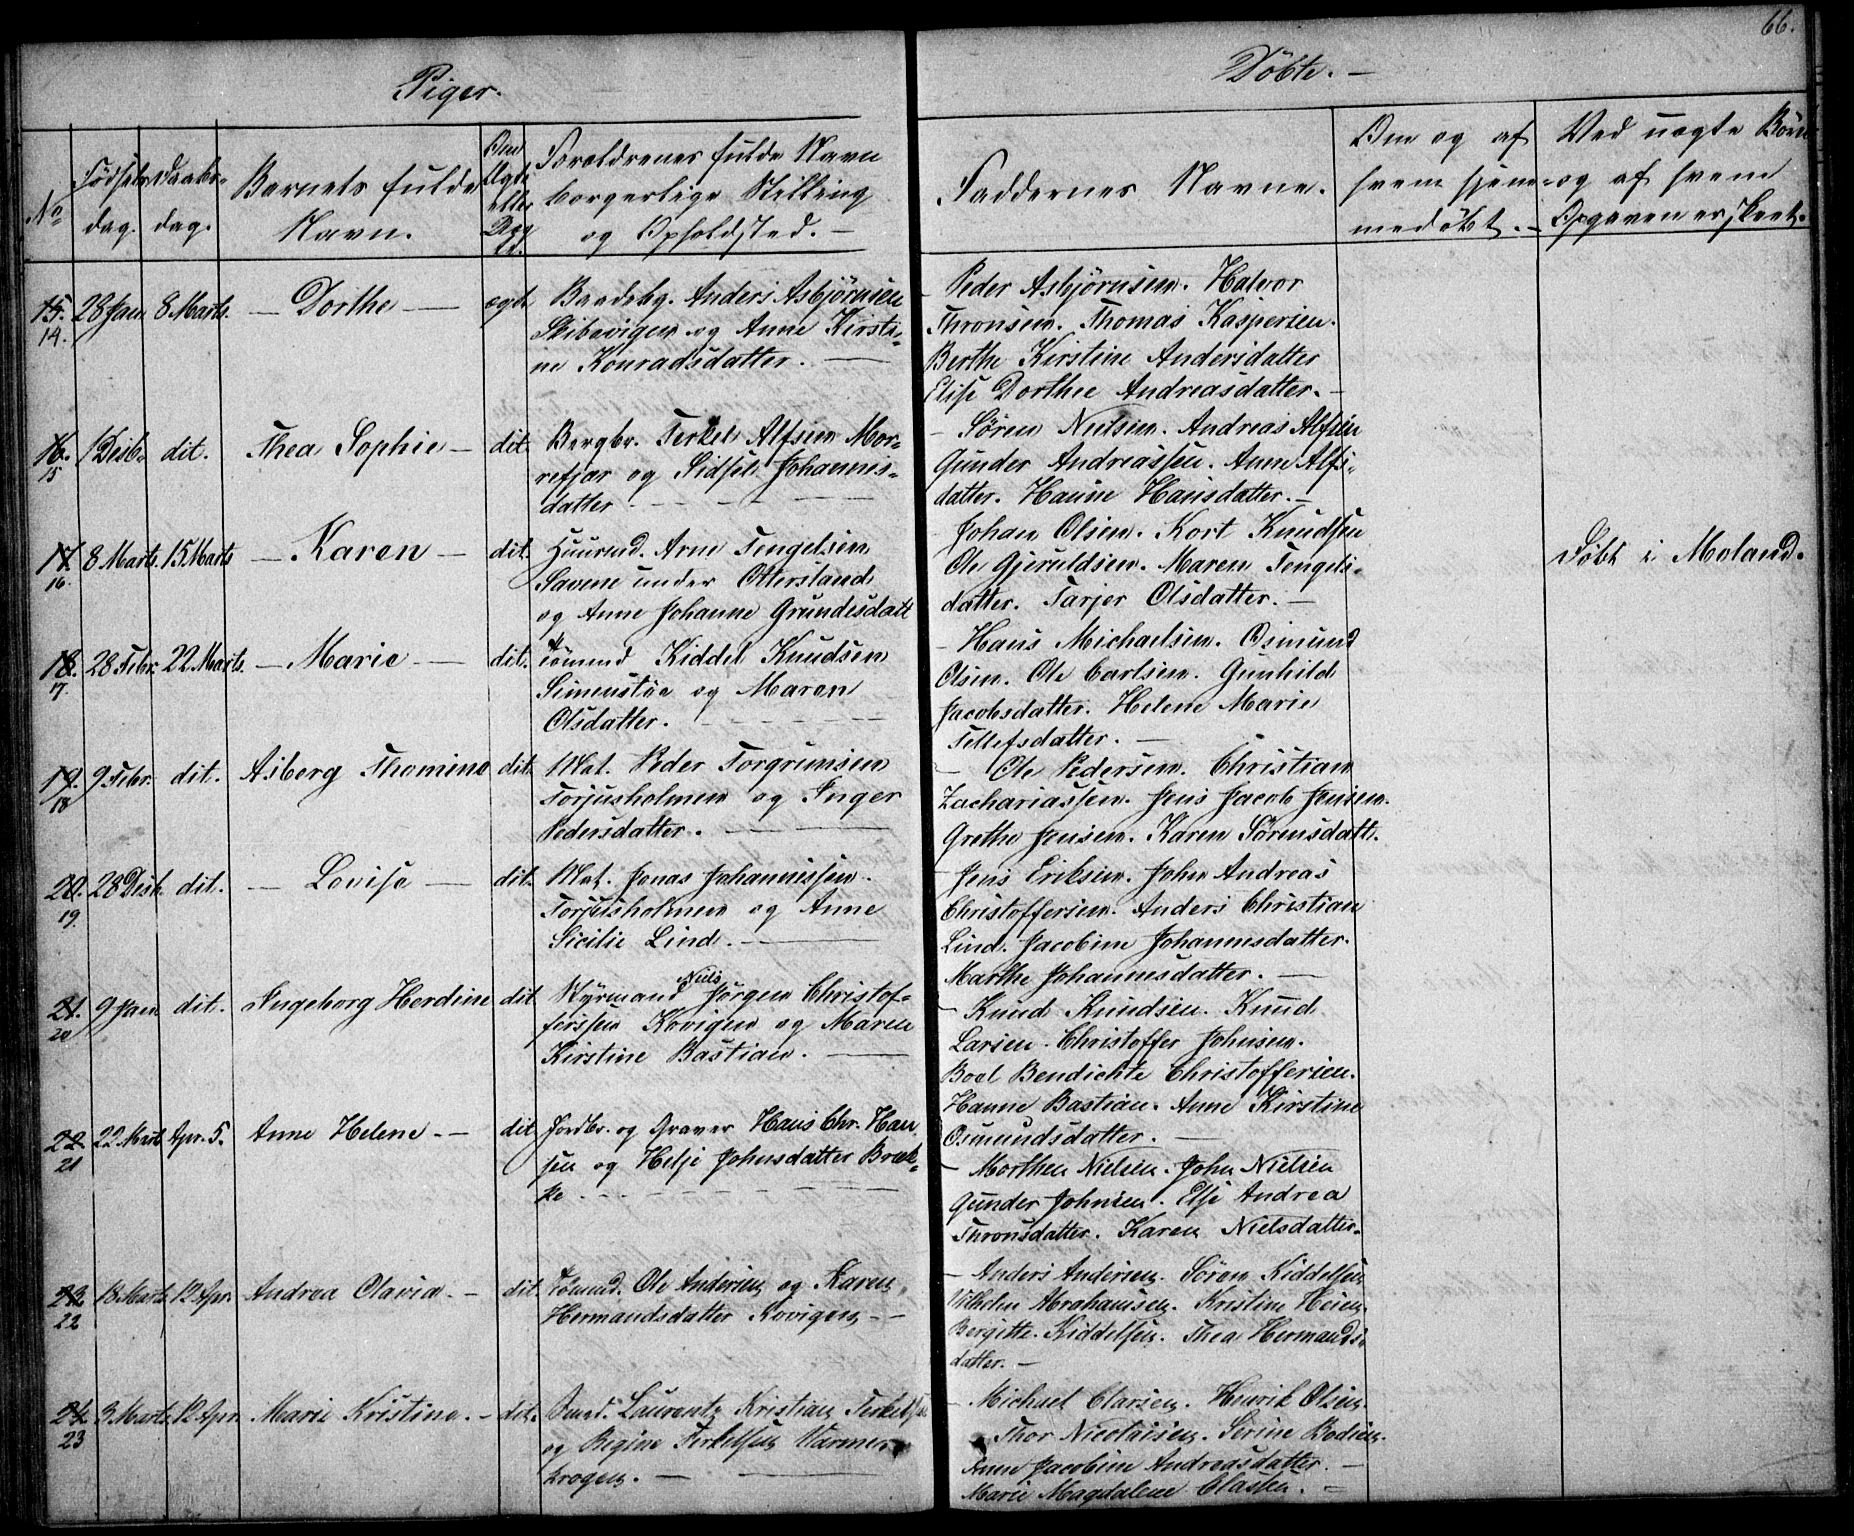 66.
Piger.
Döbte. —
No
Födsels dag.
Daabs- dag.
Barnets fulde Navn.
Om Ægte eller Uægte.
Forældrenes fulde Navn
borgerlige Stilling
og Opholdsted. —
Faddernes Navne.
Om og af
hvem hjem-
medöbt. —
Ved uægte Börn
og af hvem
Opgaven er skeet.
15. 28 Jan 8 Marts. — Dorthe — ægte Baadsbg. Anders Asbjörnsen
14. Skibevigen og Anne Kirsti-
ne Konradsdatter. —
Peder Asbjörnsen. Halvor
Thronsen. Thomas Kaspersen.
Berthe Kirstine Andersdatter
Elise Dorthee Andreasdatter. —
16. 1 Desb. dit. Thea Sophie — dit. Bergbr. Terkel Alfsen Mor-
15 refjær og Sidsel Johannis-
datter — — —
— Sören Nielsen. Andreas Alfsen
Gunder Andreassen. Anne Alfs-
datter. Hanne Hansdatter. —
17. 8 Marts. 15 Marts — Karen — dit. Huusmd. Arne Tengelsen
16. Savene under Ottersland
og Anne Johanne Grundesdatt
Johan Olsen. Kort Knudsen
Ole Gjeruldsen. Maren Tengels-
datter. Tarjer Olsdatter. —
Döbt i Moland.
18. 28 Febr. 22 Marts. — Marie — dit. Tömmd Kiddel Knudsen
17. Simenstöe og Maren
Olsdatter. — — —
— Hans Michaelsen. Osmund
Olsen. Ole Carlsen. Gunhild
Jacobsdatter. Helene Marie
Tellefsdatter. —
19. 9 Febr. dit. Asberg Thomine dit. Mat. Peder Torgrimsen
18 Torjusholmen og Inger
Pedersdatter. — —
— Ole Pedersen. Christian
Zachariassen. Jens Jacob Jensen.
Grethe Jensen. Karen Sörensdatt.
20. 28 Desb. dit. — Lovise — dit. Mat. Jonas Johannissen.
19. Torjusholmen og Anne
Sicilie Lind. —
— Jens Eriksen. John Andreas
Christoffersen. Anders Christian
Lind. Jacobine Johannesdatter.
Marthe Johannesdatter. —
21. 9 Jan dit. Ingeborg Herdine dit Styrmand Niels Jörgen Christof-
20 fersen Kovigen og Maren
Kirstine Bastian. —
— Knud Knudsen. Knud
Larsen. Christoffer Johnsen.
Boel Bendichte Christoffersen.
Hanne Bastian. Anne Kirstine
Osmundsdatter. —
22. 22 Mart Apr. 5. Anne Helene. — dit Jordbr. og Graver Hans Chr. Han
21 sen og Helje Johnsdatter Bræk-
ke. — — —
— Morthen Nielsen. John Nielsen
Gunder Johnsen. Else Andrea
Thronsdatter. Karen Nielsdatter.
23. 18 Marts 12 Apr. Andrea Olavia. — dit. Tömmd. Ole Andersen og Karen
22 Hermandsdatter Kovigen —
— Anders Andersen. Sören Kiddelsen
Vilhelm Abrahamsen. Kristine Heien.
Bergitte Kiddelsen. Thea Hermands-
datter. —
24. 3 Marts 12 Apr. Marie Kristine. — dit. Laurentz Kristian Terkelsen
23 og Regine Terkelsen Narmes-
krogen. — —
— Michael Clarsen. Henrik Olsen.
Thor Nicolaisen. Serine Bodien.
Anne Jacobine Andreasdatter. —
Marie Magdalene Classen. —